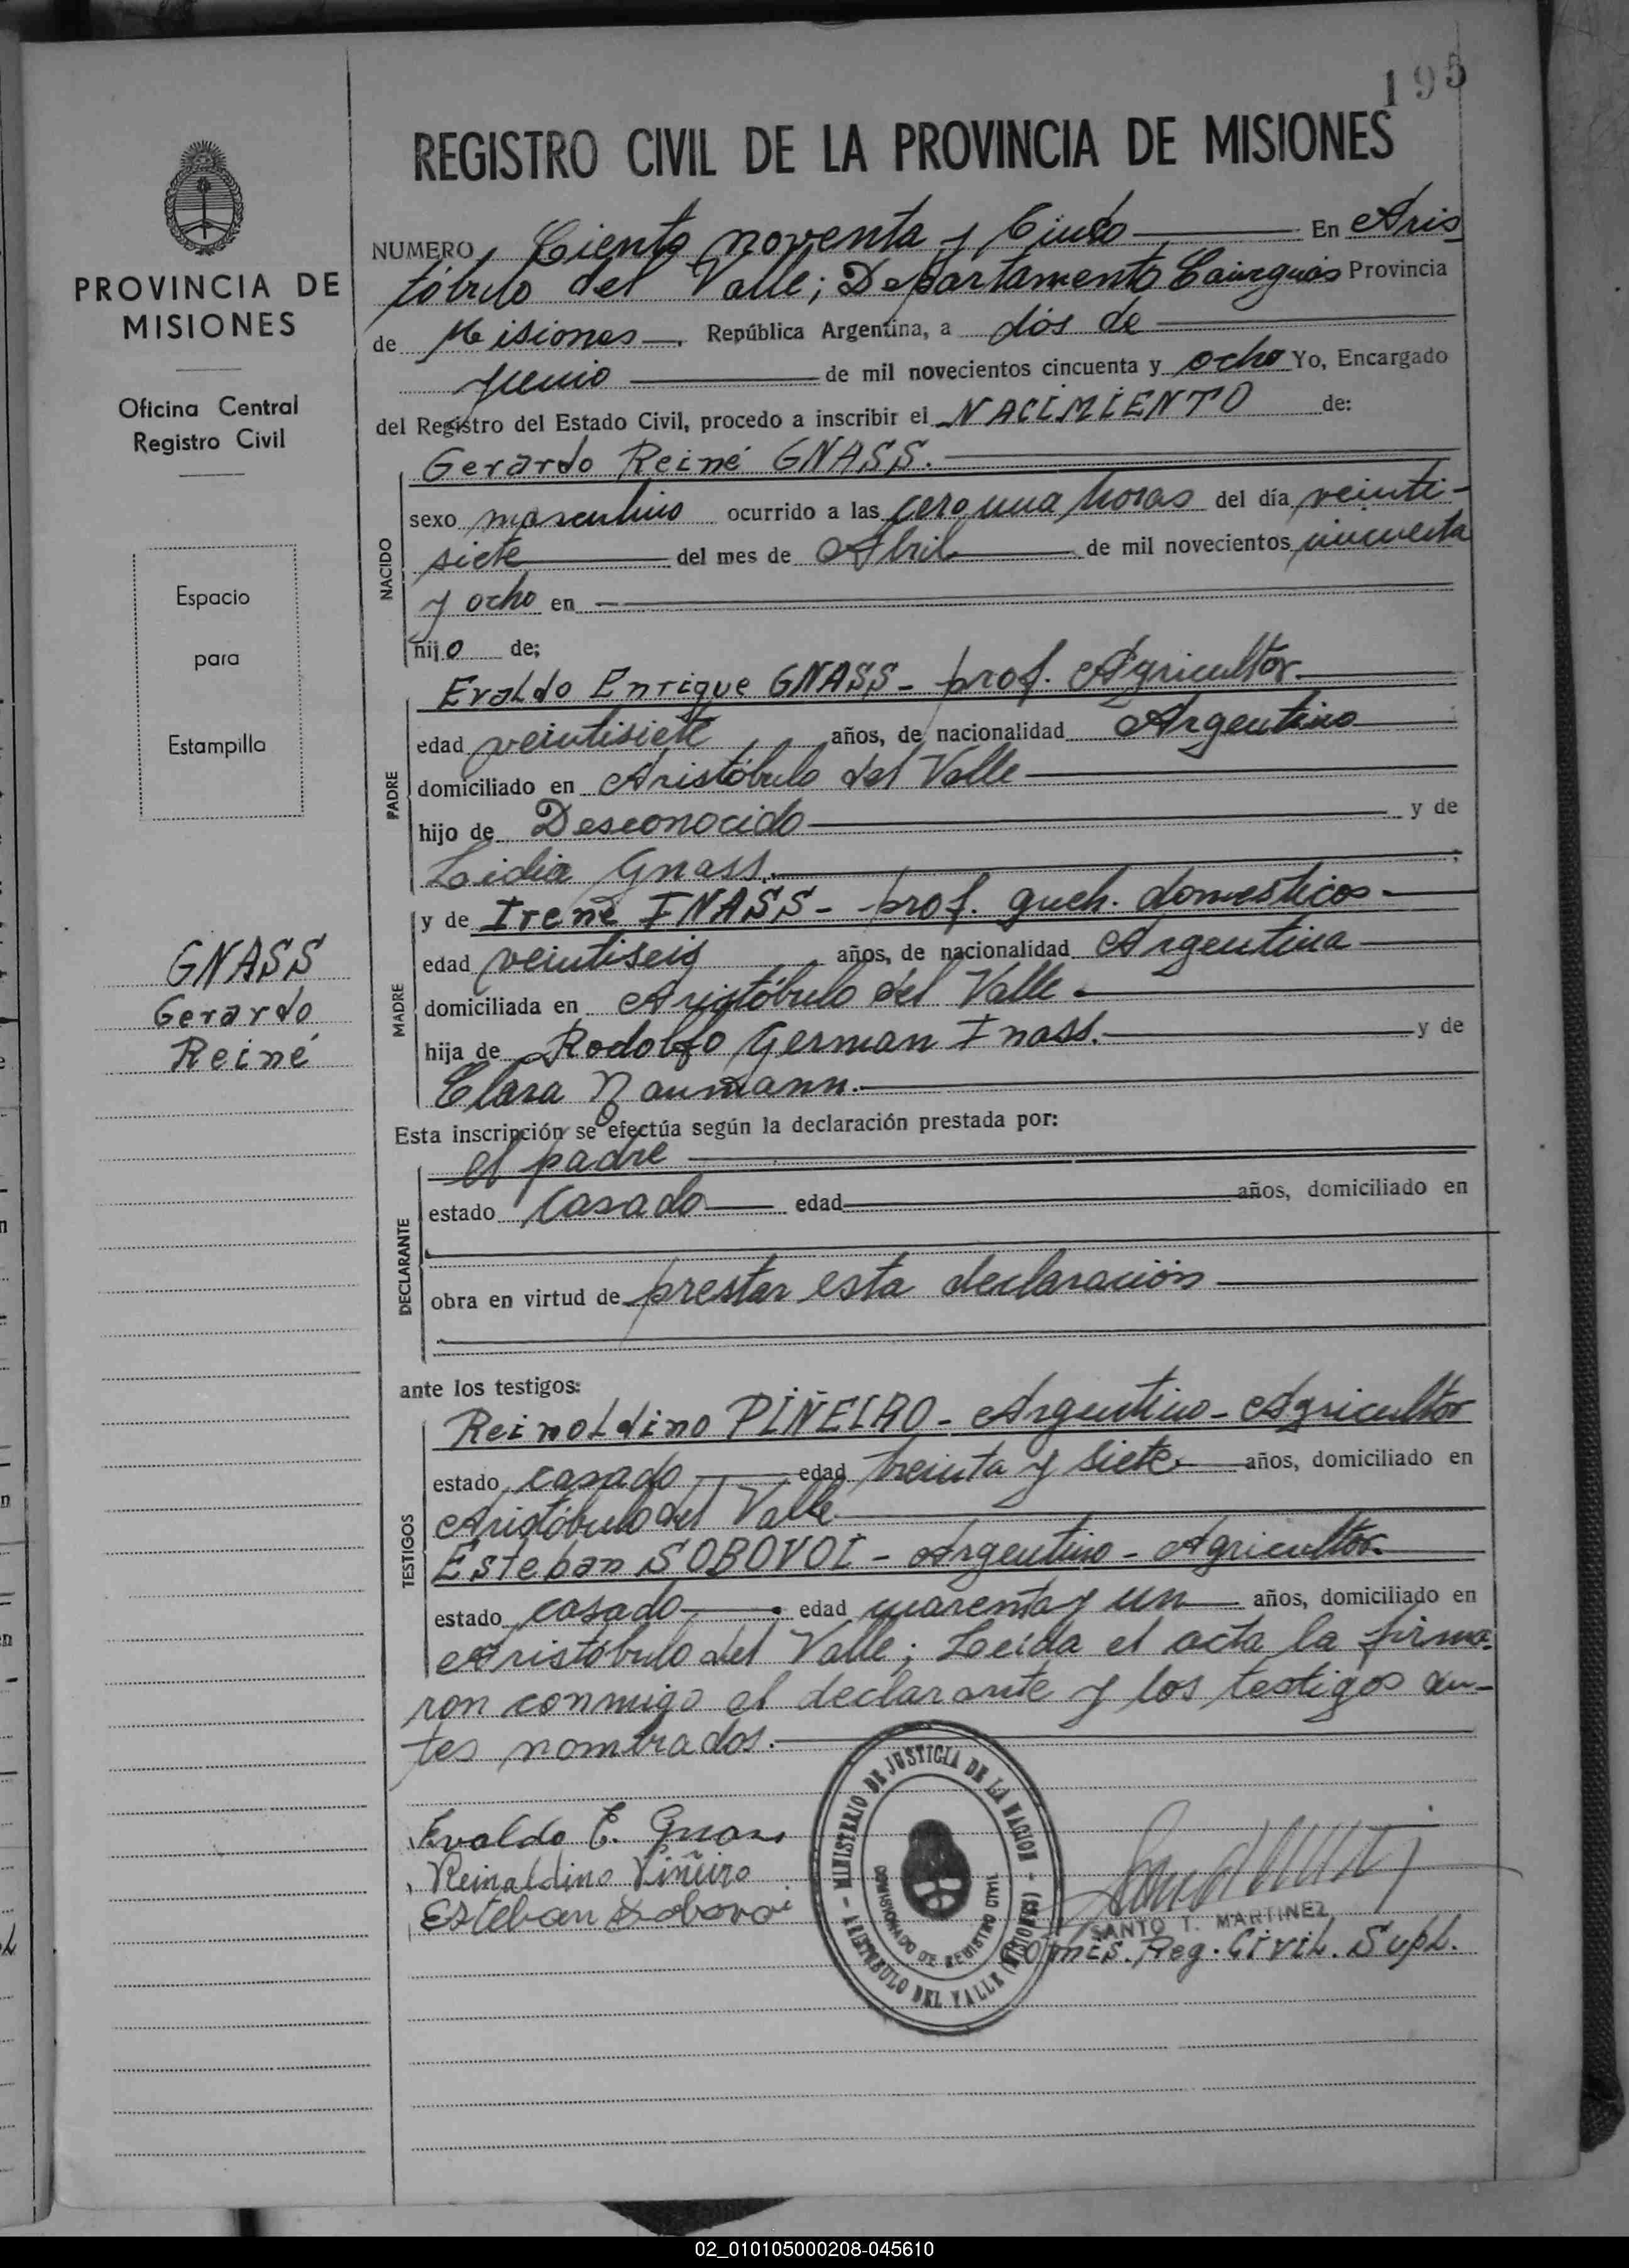 195
REGISTRO CIVIL DE LA PROVINCIA DE MISIONES
PROVINCIA DE
MISIONES
Oficina Central
Registro Civil
Espacio
para
Estampilla
GNASS
Gerardo
Reiné
NUMERO Ciento noventa y Cinco En Aris
tóbulo del Valle; Departamento Cainguás Provincia
de Misiones República Argentina, a dos de
Junio de mil novecientos cincuenta y ocho Yo, Encargado
del Registro del Estado Civil, procedo a inscribir el NACIMIENTO de:
NACIDO
Gerardo Reiné GNASS.
sexo masculino ocurrido a las cero una horas del día veinti-
siete del mes de Abril de mil novecientos cincuenta
y ocho en
hijo de;
PADRE
Evaldo Enrique GNASS - prof. Agricultor.
edad veintisiete años, de nacionalidad Argentino
domiciliado en Aristóbulo del Valle
hijo de Desconocido y de
Lidia Gnass.
MADRE
y de Irene INASS - prof. queh. domesticos -
edad veintiseis años, de nacionalidad Argentina
domiciliada en Aristóbulo del Valle.
hija de Rodolfo German Inass. y de
Clara Naumann.
Esta inscripción se efectúa según la declaración prestada por:
DECLARANTE
el padre
estado casado edad años, domiciliado en
obra en virtud de prestar esta declaración
ante los testigos:
TESTIGOS
Reinoldino PIÑEIRO - Argentino - Agricultor
estado casado edad treinta y siete años, domiciliado en
Aristóbulo del Valle
Esteban SOBOVOI - Argentino - Agricultor.
estado casado edad cuarenta y un años, domiciliado en
Aristóbulo del Valle; Leída el acta la firma-
ron conmigo el declarante y los testigos an-
tes nombrados.
Evaldo E. Gnass
Reinaldino Piñeiro
Esteban Sobovoi
- MINISTERIO DE JUSTICIA DE LA NACION -
ARISTOBULO DEL VALLE (MISIONES)
COMISIONADO DE REGISTRO CIVIL
SANTO T. MARTINEZ
Comis. Reg. Civil. Supl.
02_010105000208-045610